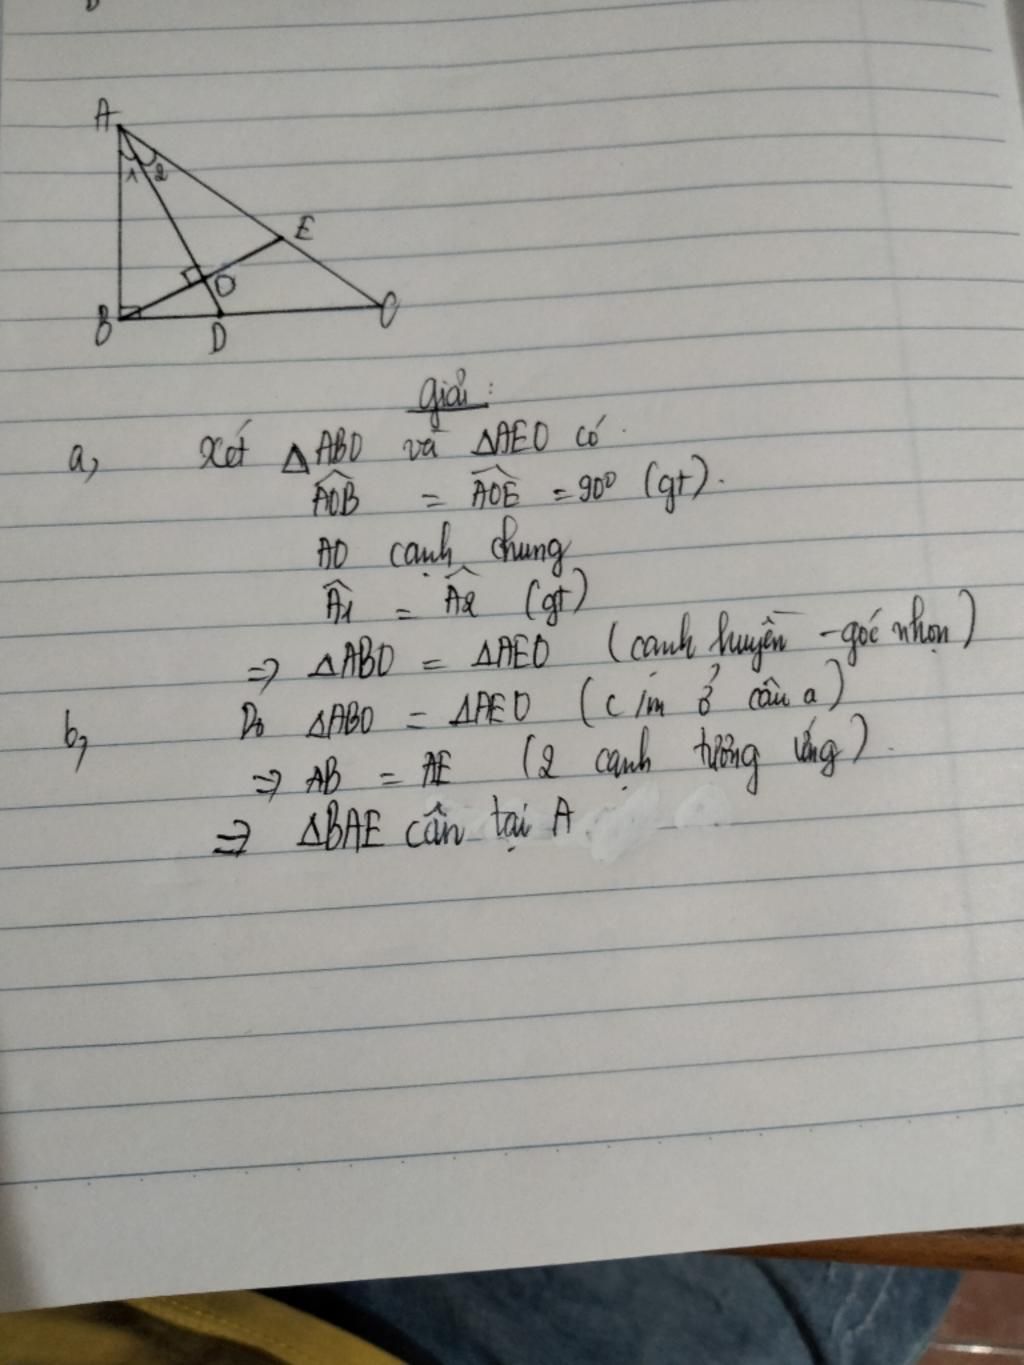 A
1 2
E
O
B
D
C
Giải:
a, Xét △ABO và △AEO có.
AOB = AOE = 90° (gt).
AO cạnh chung
Â1 = Â2 (gt)
=> △ABO = △AEO (cạnh huyền - góc nhọn)
b, Do △ABO = △AEO (c/m ở câu a)
=> AB = AE (2 cạnh tương ứng).
=> △BAE cân tại A